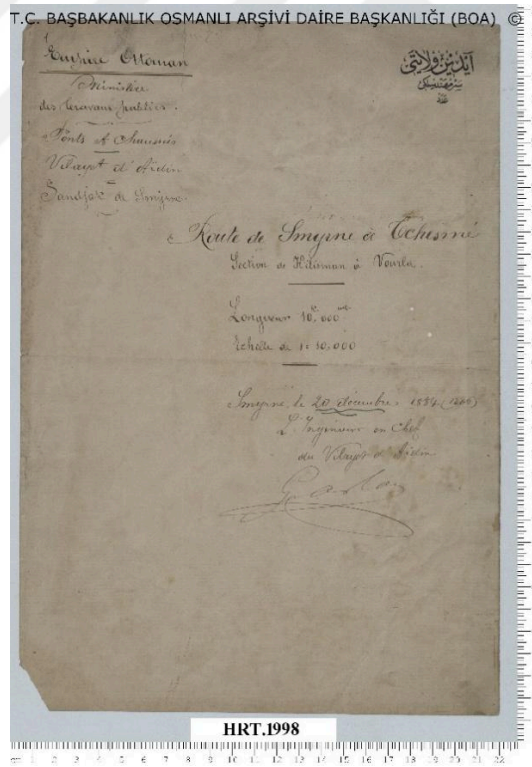 T.C. BAŞBAKANLIK OSMANLI ARŞİVİ DAİRE BAŞKANLIĞI (BOA) ©
Empire Ottoman
Ministère
des travaux publics.
Ponts et Chaussées
Vilayet d'Aïdin
Sandjak de Smyrne
آیدین ولایتی
سرمهندسلكی
Route de Smyrne à Tchesmé
Section de Kilisman à Vourla.
Longueur 10.000
Echelle de 1:10.000
Smyrne, le 20 décembre 1884
L'Ingénieur en Chef
du Vilayet d'Aïdin
HRT.1998
cm 1 2 3 4 5 6 7 8 9 10 11 12 13 14 15 16 17 18 19 20 21 22